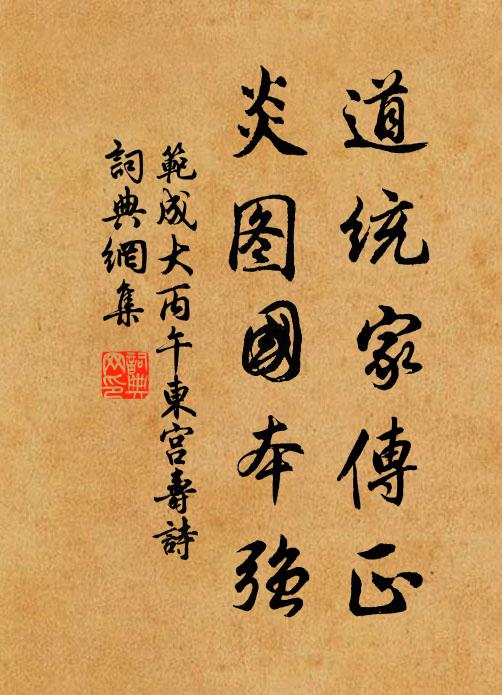 道統家傳正
炎图國本強
範成大丙午東宮壽詩
詞典網集
詞典网印